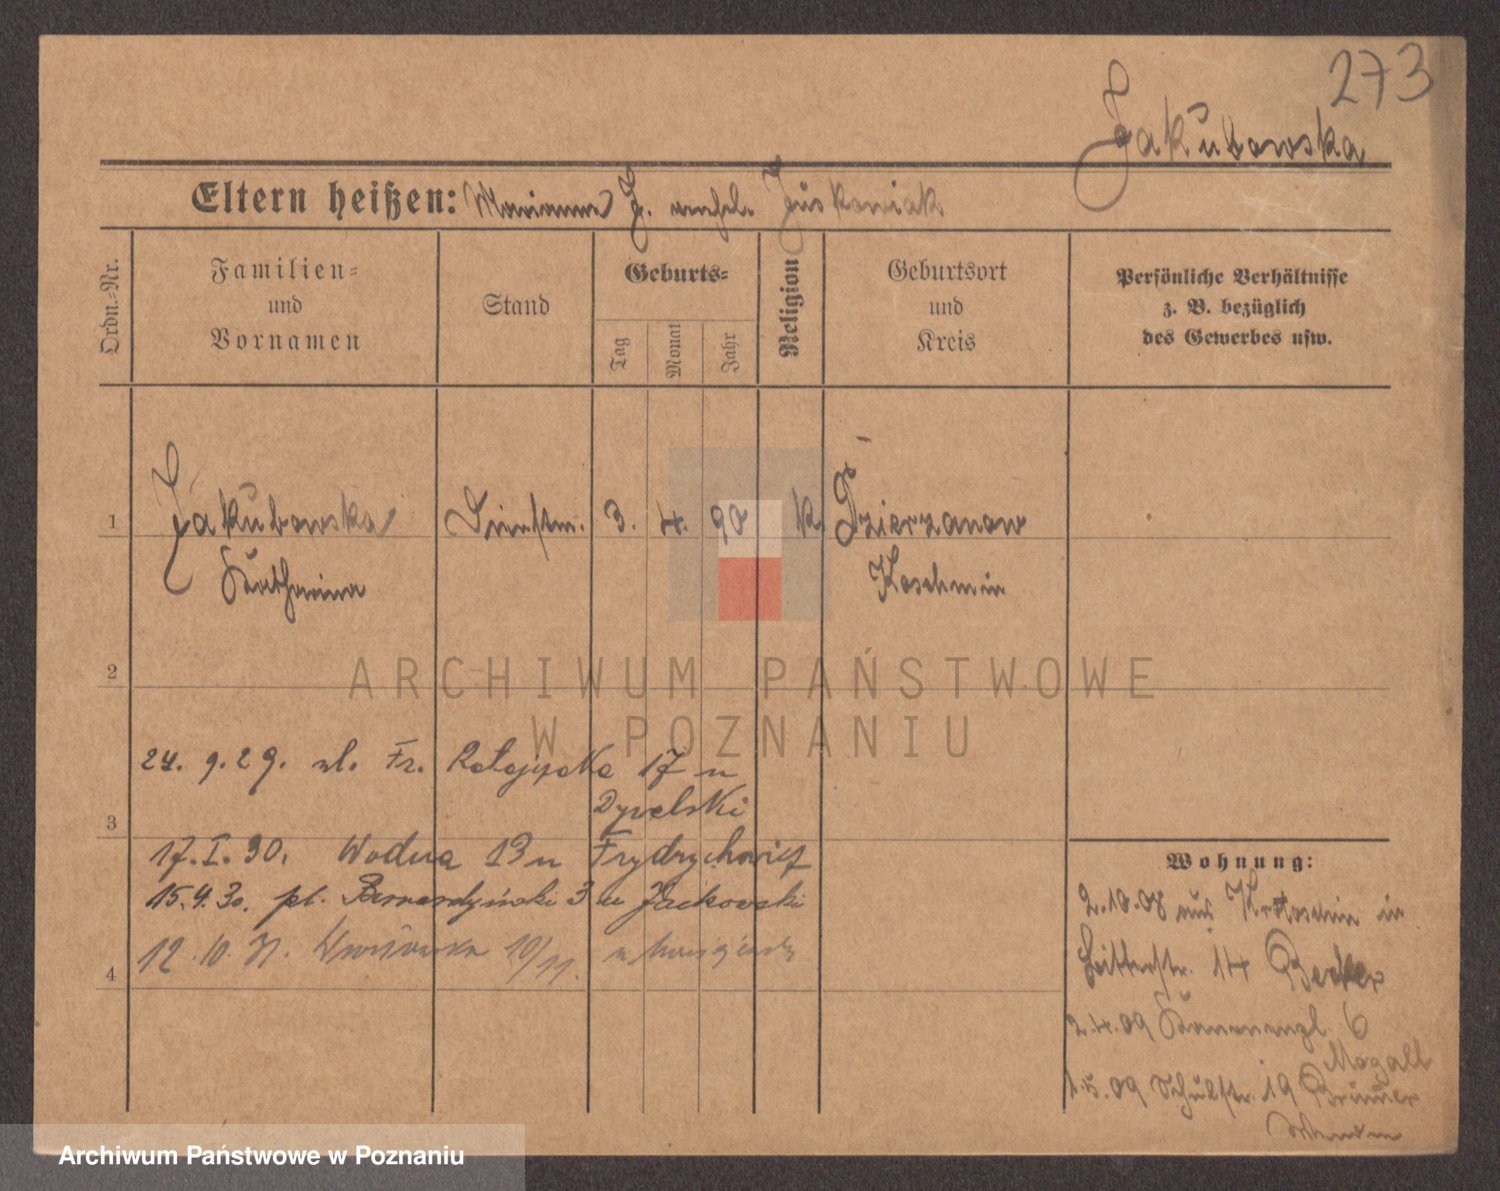 273
Jakubowska
Eltern heißen: Marianna J. verehel. Juskowiak
Ordn.-Nr.
Familien- und Vornamen
Stand
Geburts-
Tag
Monat
Jahr
Religion
Geburtsort und Kreis
Persönliche Verhältnisse
z. B. bezüglich
des Gewerbes usw.
1
Jakubowska Dienstm. 3. 4. 90 k. Dzierzanow
Katharina Koschmin
2
ARCHIWUM PAŃSTWOWE
W POZNANIU
24. 9. 29. ul. Fr. Ratajczaka 17 u
3
17. I. 30. Wodna 13 u Frydrychowicz
15. 9. 30. pl. Bernardyński 3 u Jackowski
12. 10. 31.
4
Wohnung:
2.10.08 aus Krotoschin in
14 Becker
2.4.09 Kanonenpl. 6
Mogall
1.5.09 Schulstr. 19
Archiwum Państwowe w Poznaniu